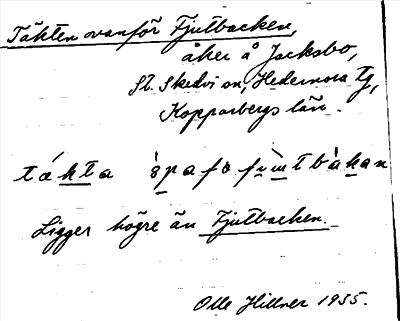 Täkten ovanför Fjutbacken,
åker å Jacksbo,
St. Skedvi sn, Hedemora tg,
Kopparbergs län.
tákta òpaföfùtbàkan
Ligger högre än Fjutbacken.
Olle Hillner 1935.